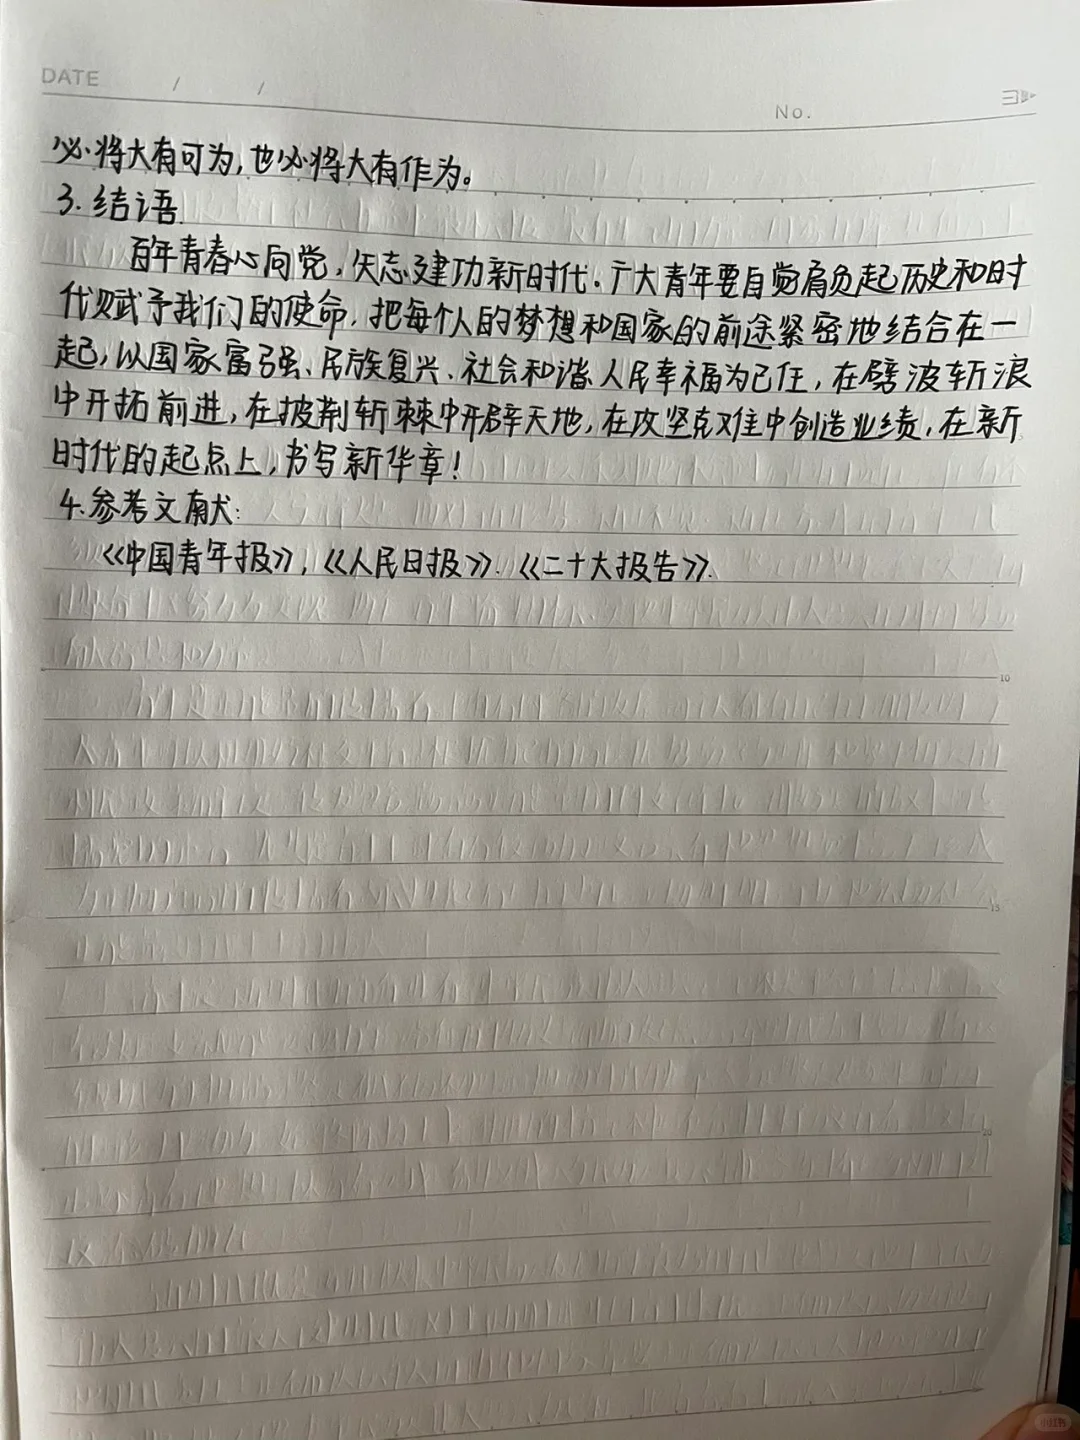 DATE / /
No.
必将大有可为,也必将大有作为。
3.结语.
百年青春心向党,矢志建功新时代。广大青年要自觉肩负起历史和时
代赋予我们的使命,把每个人的梦想和国家的前途紧密地结合在一
起,以国家富强、民族复兴、社会和谐、人民幸福为己任,在劈波斩浪
中开拓前进,在披荆斩棘中开辟天地,在攻坚克难中创造业绩,在新
时代的起点上,书写新华章!
4.参考文献:
《中国青年报》,《人民日报》.《二十大报告》.
10
15
20
小红书